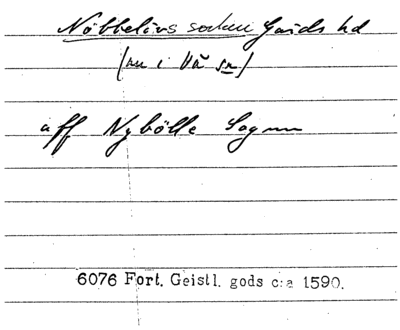 Nöbbelövs socken Gärds hd
(nu i Vä sn)
aff Nybölle Sognn
6076 Fort. Geistl. gods c:a 1590.